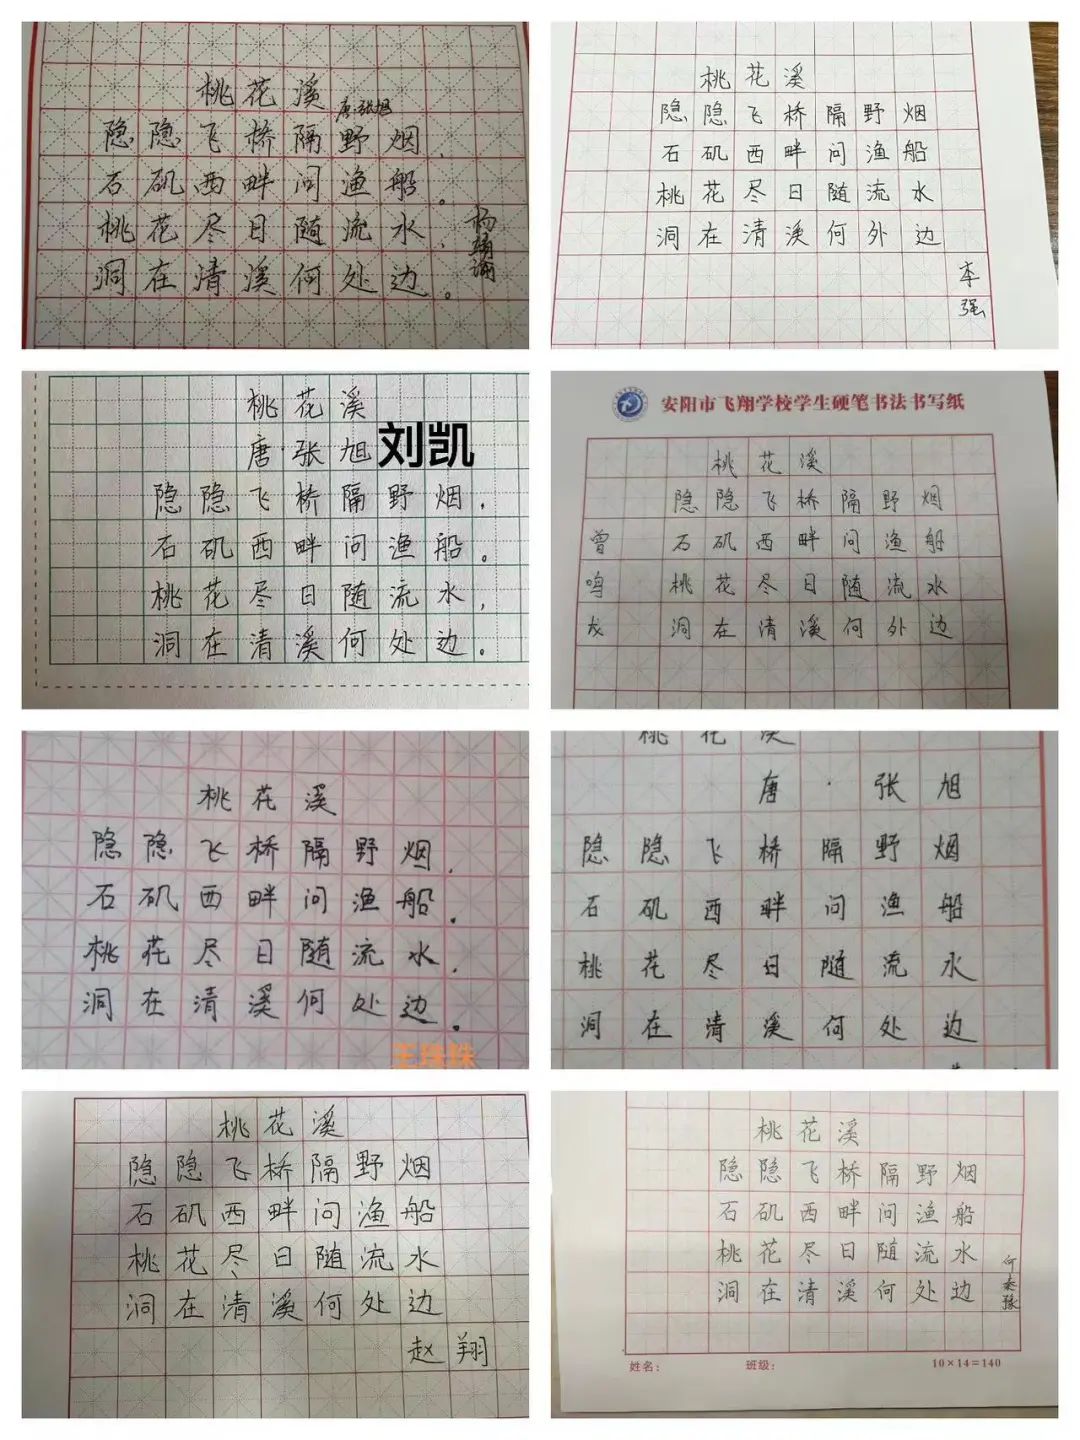 桃花溪
唐·张旭
隐隐飞桥隔野烟，
石矶西畔问渔船。
桃花尽日随流水，
洞在清溪何处边。
桃花溪
隐隐飞桥隔野烟
石矶西畔问渔船
桃花尽日随流水
洞在清溪何外边
李强
桃花溪
唐·张旭
刘凯
隐隐飞桥隔野烟，
石矶西畔问渔船。
桃花尽日随流水，
洞在清溪何处边。
安阳市飞翔学校学生硬笔书法书写纸
桃花溪
隐隐飞桥隔野烟
石矶西畔问渔船
桃花尽日随流水
洞在清溪何外边
曾鸣龙
桃花溪
隐隐飞桥隔野烟，
石矶西畔问渔船。
桃花尽日随流水，
洞在清溪何处边。
王珠珠
桃花溪
唐·张旭
隐隐飞桥隔野烟
石矶西畔问渔船
桃花尽日随流水
洞在清溪何处边
桃花溪
隐隐飞桥隔野烟
石矶西畔问渔船
桃花尽日随流水
洞在清溪何处边
赵翔
桃花溪
隐隐飞桥隔野烟
石矶西畔问渔船
桃花尽日随流水
洞在清溪何处边
姓名： 班级： 10×14=140